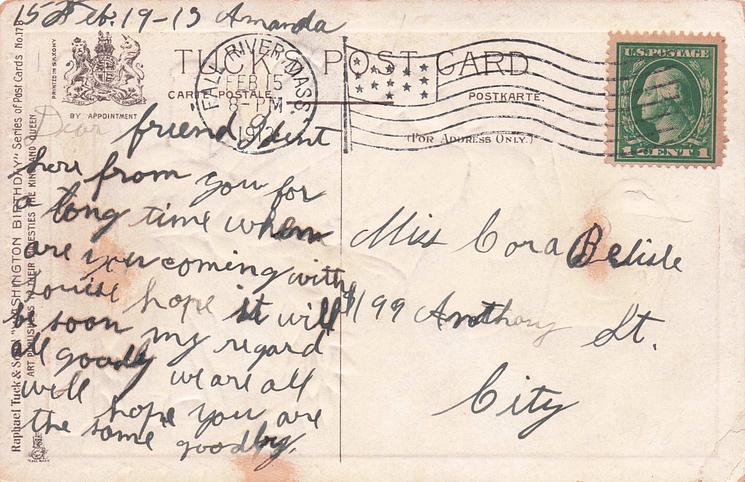 15 Feb. 19-13 Amanda
TUCK POST CARD
CARTE POSTALE.
POSTKARTE.
(FOR ADDRESS ONLY.)
BY APPOINTMENT
PRINTED IN SAXONY
Raphael Tuck & Sons' "WASHINGTON BIRTHDAY" Series of Post Cards No. 178
ART PUBLISHERS TO THEIR MAJESTIES THE KING AND QUEEN
FALL RIVER, MASS.
FEB 15
8-PM
U.S. POSTAGE
1 CENT 1
Dear friend I dent
here from you for
a long time when
are you coming with
Louise hope it will
be soon my regard
all goodly we are all
well hope you are
the same goodby.
Miss Cora Belisle
199 Anthony St.
City